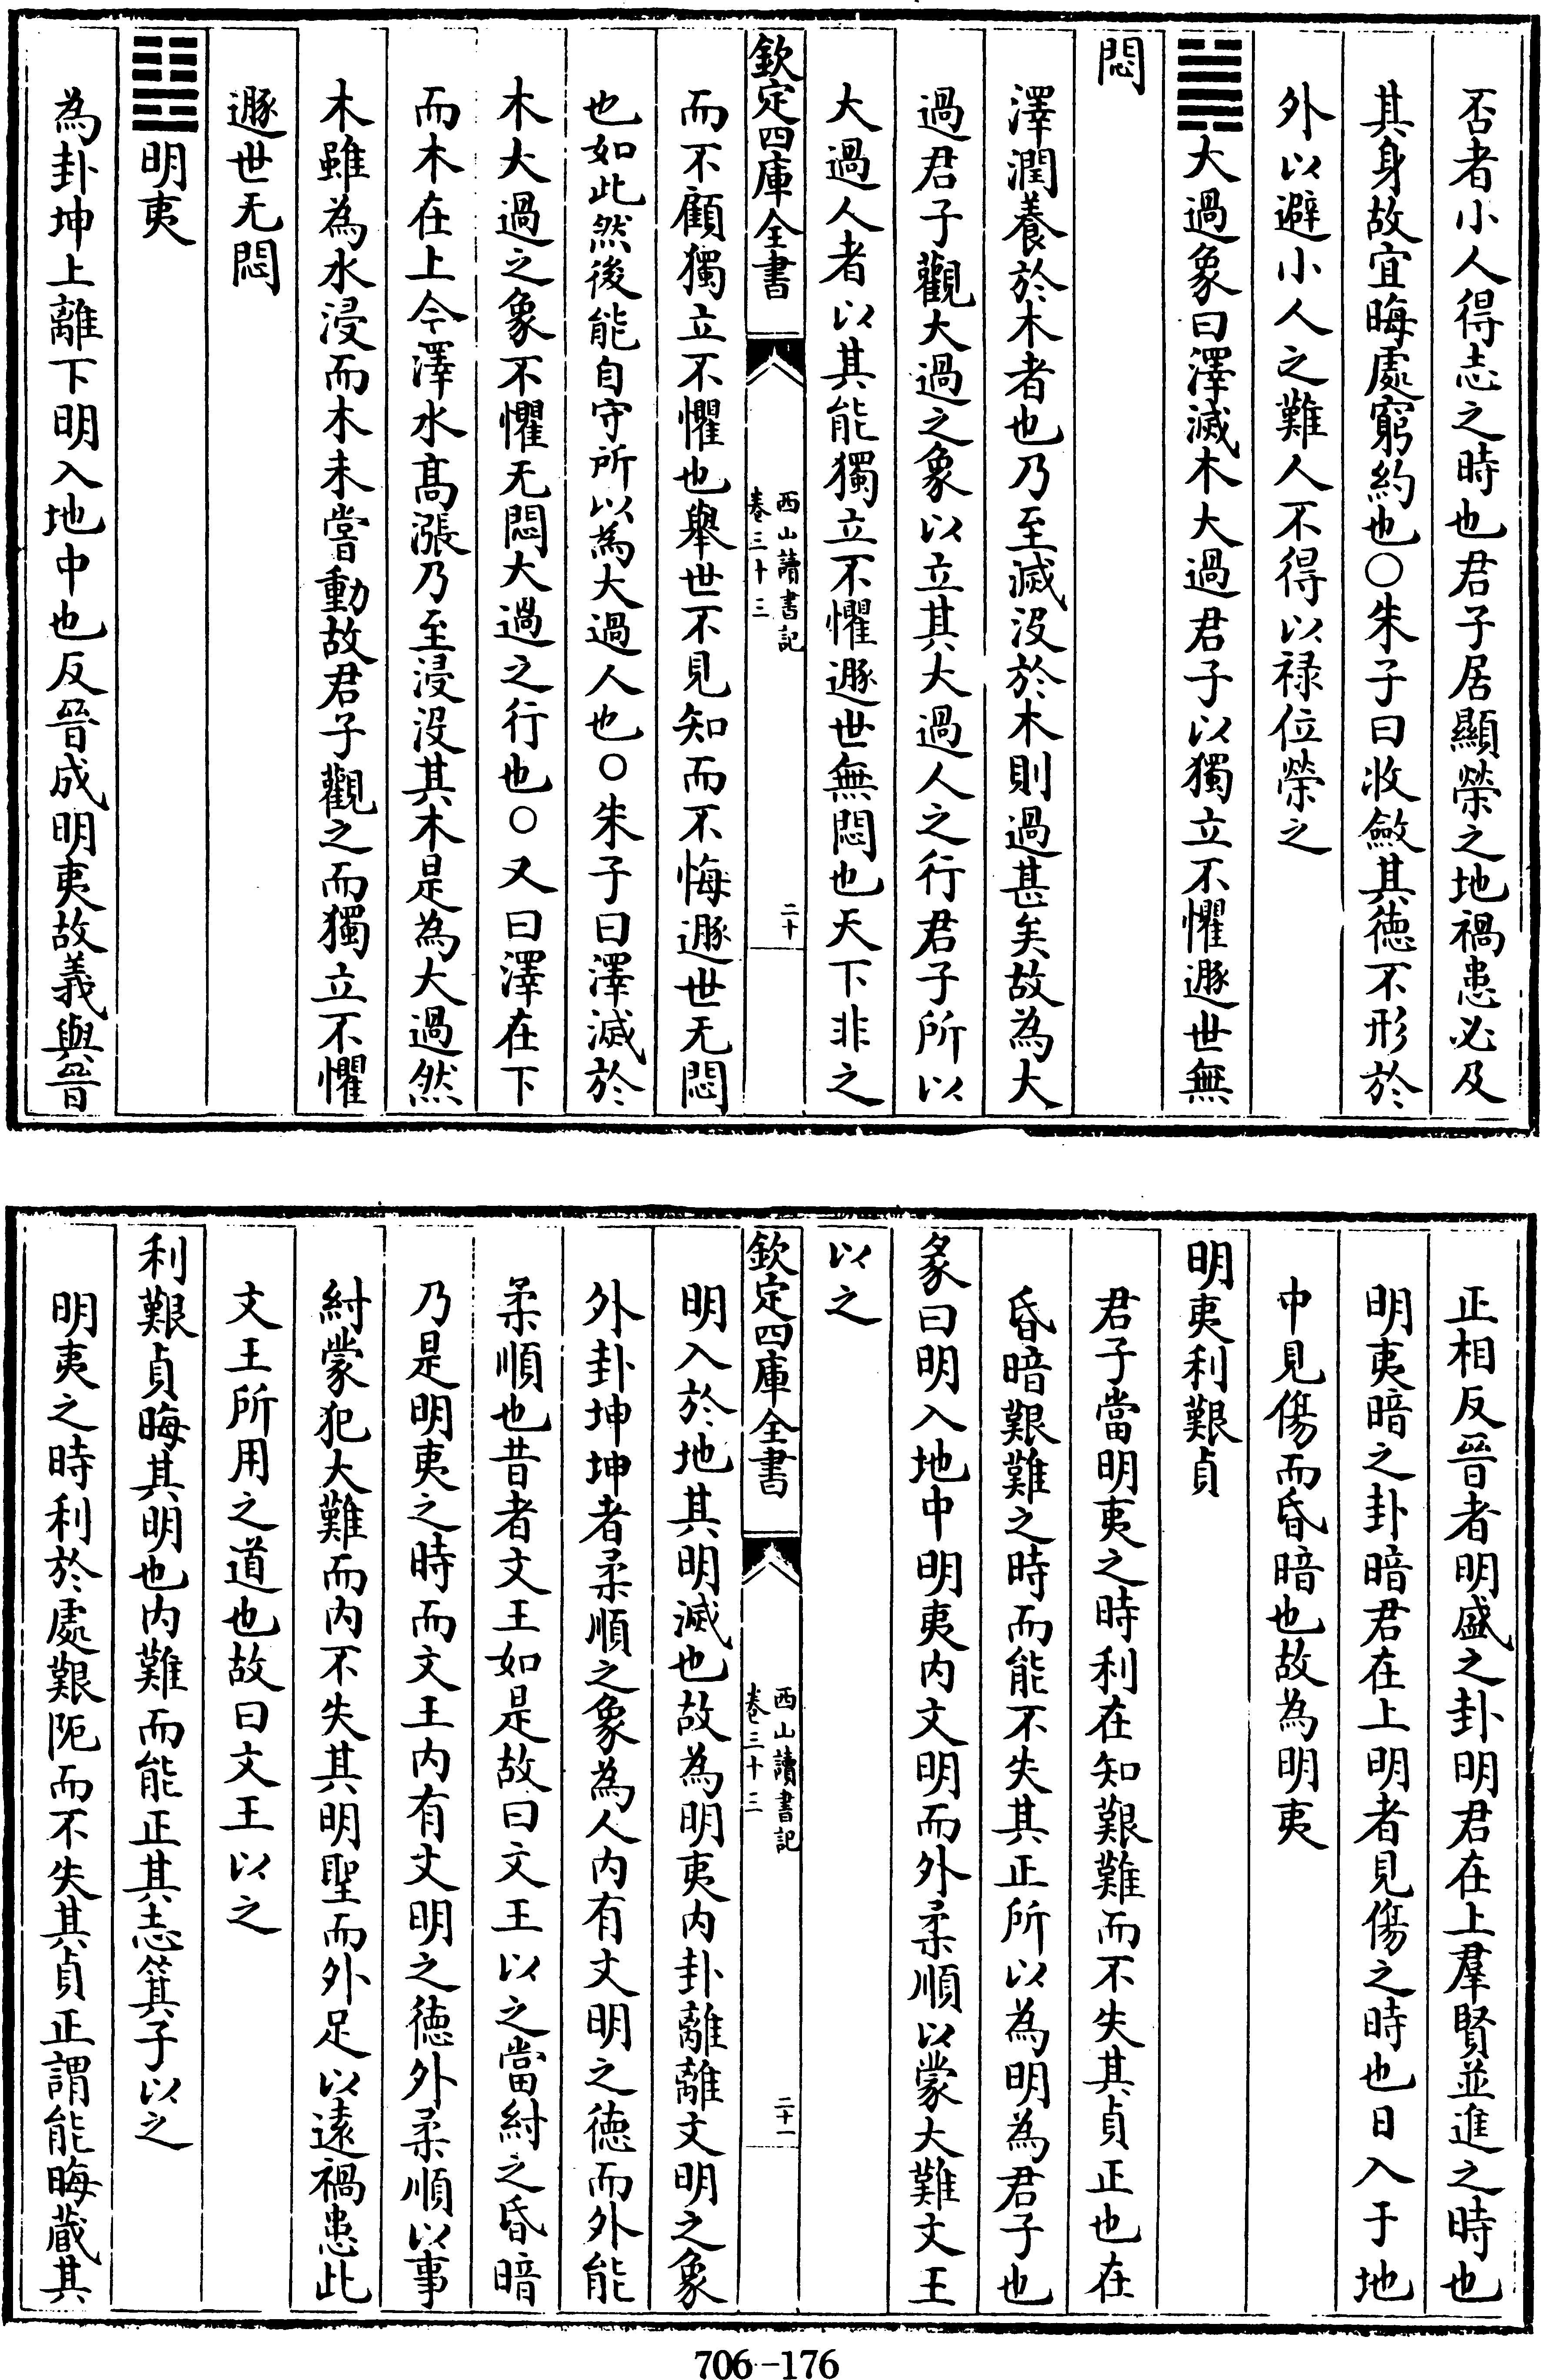 否者小人得志之時也君子居顯榮之地禍患必及
其身故宜晦處窮約也○朱子曰收斂其徳不形於
外以避小人之難人不得以禄位榮之
䷛大過象曰澤滅木大過君子以獨立不懼遯世無
悶
澤潤養於木者也乃至滅没於木則過甚矣故為大
過君子觀大過之象以立其大過人之行君子所以
大過人者以其能獨立不懼遯世無悶也天下非之
欽定四庫全書
西山讀書記
卷三十三
二十
而不顧獨立不懼也舉世不見知而不悔遯世无悶
也如此然後能自守所以為大過人也○朱子曰澤滅於
木大過之象不懼无悶大過之行也○又曰澤在下
而木在上今澤水高漲乃至浸没其木是為大過然
木雖為水浸而木未嘗動故君子觀之而獨立不懼
遯世无悶
䷣明夷
為卦坤上離下明入地中也反晉成明夷故義與晉
正相反晉者明盛之卦明君在上羣賢並進之時也
明夷暗之卦暗君在上明者見傷之時也日入于地
中見傷而昏暗也故為明夷
明夷利艱貞
君子當明夷之時利在知艱難而不失其貞正也在
昏暗艱難之時而能不失其正所以為明為君子也
彖曰明入地中明夷内文明而外柔順以蒙大難文王
以之
欽定四庫全書
西山讀書記
卷三十三
二十一
明入於地其明滅也故為明夷内卦離離文明之象
外卦坤坤者柔順之象為人内有文明之徳而外能
柔順也昔者文王如是故曰文王以之當紂之昏暗
乃是明夷之時而文王内有文明之徳外柔順以事
紂蒙犯大難而内不失其明聖而外足以遠禍患此
文王所用之道也故曰文王以之
利艱貞晦其明也内難而能正其志箕子以之
明夷之時利於處艱阨而不失其貞正謂能晦藏其
706-176